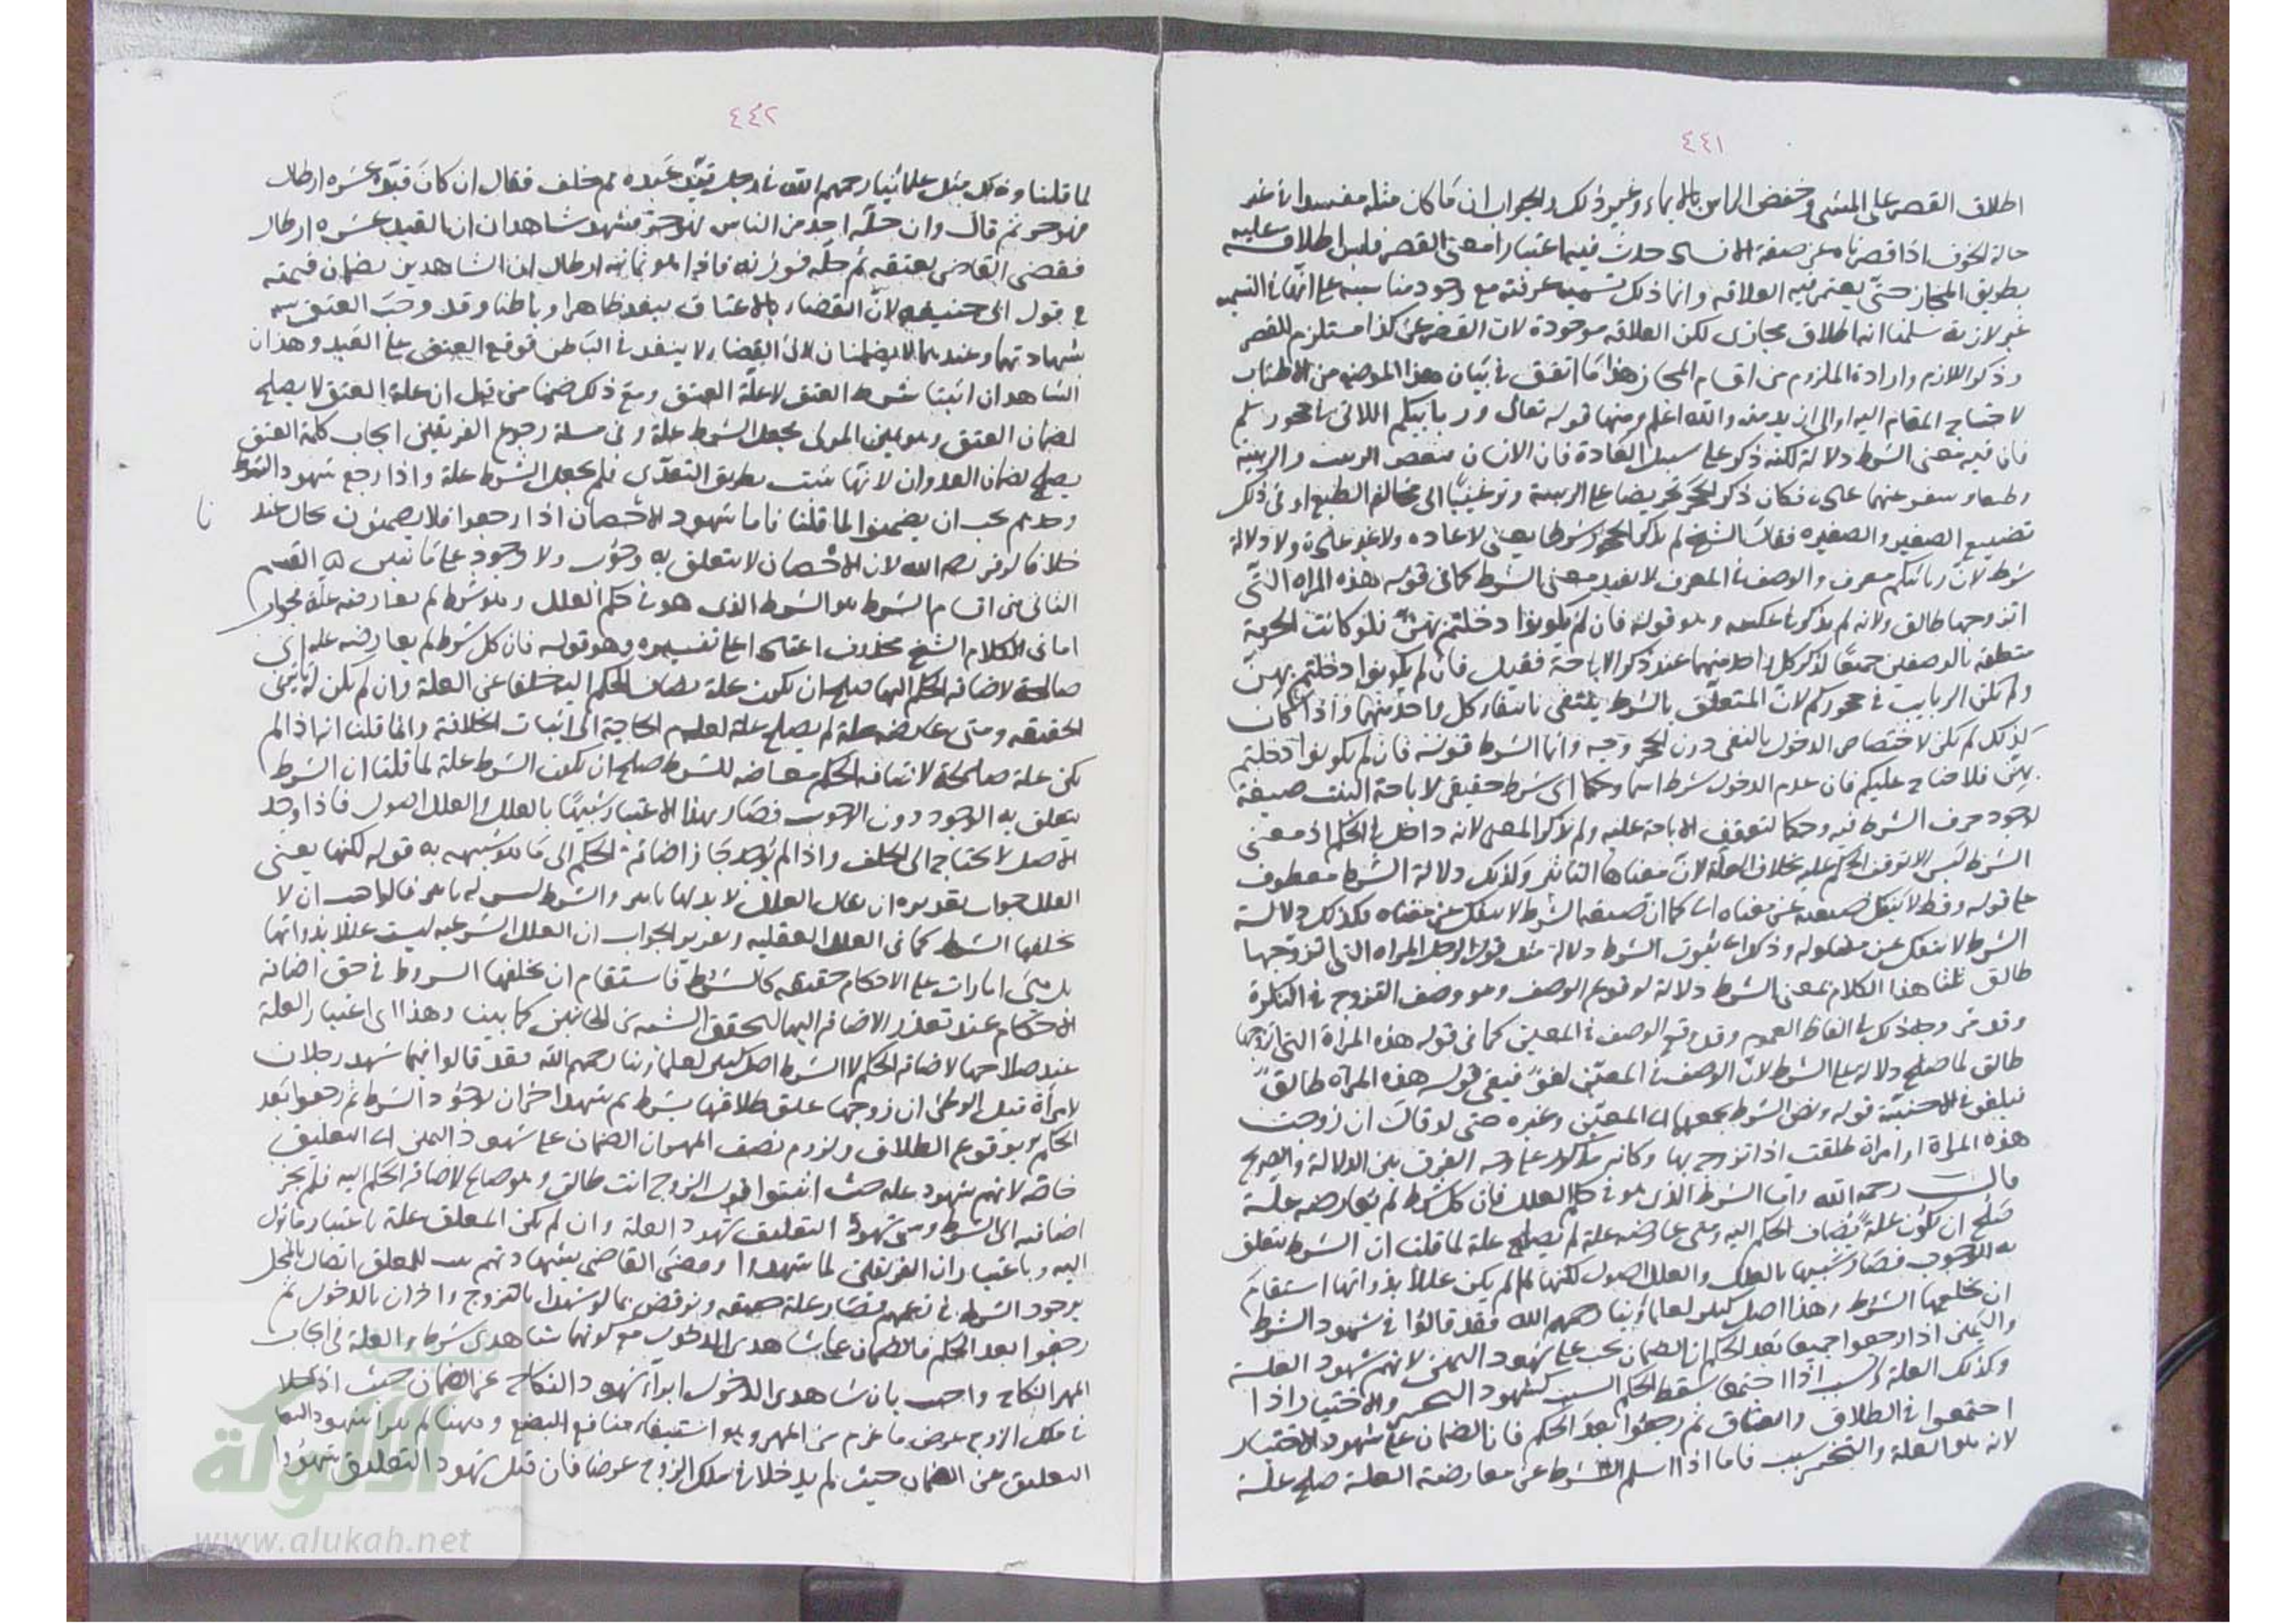 ٤٤١
اطلاق القصر على المشي وخفض الراس بالايماء وغير ذلك والجواب ان ما كان مثله مفسدا في غير
حالة الخوف اذا قصرناه عن صفة حدث فيها اعتبار معنى القصر فليس اطلاقه عليه
بطريق المجاز حتى يعتبر فيه العلاقة وانما ذلك تسمية عرفته مع وجود مناسبة على انها في التسمية
غير لازمة سلمنا انه اطلاق مجازي لكن العلاقة موجودة لان القصر عن كذا مستلزم للقصر
وذكر اللازم وارادة الملزوم من اقسام المجاز هذا ما اتفق في بيان هذا الموضع من الاطناب
لاحتياج المقام اليه والله اعلم ومنها قوله تعالى وربائبكم اللاتي في حجوركم
فان فيه معنى الشرط دلالة لكنه ذكر على سبيل العادة فان الانسان يبغض الربيب والربيبة
وطبعه ينفر عنهما فكان ذكر الحجر تحريضا على الربيبة وترغيبا الى مخالفة الطبع او في ذلك
تضييع الصغير والصغيرة فقال الشيخ لم يذكر الحجر شرطا يعني لا عادة ولا غير عادة ولا دلالة
شرط لان ربائبكم معرف والوصف في المعرف لا يفيد معنى الشرط كما في قوله هذه المراة التي
اتزوجها طالق ولانه لم يذكر في عكسه وهو قوله فان لم تكونوا دخلتم بهن فلو كانت الحرمة
متعلقة بالوصفين جميعا لذكر كل واحد منهما عند ذكر الاباحة فقيل فان لم تكونوا دخلتم بهن
ولم تكن الربايب في حجوركم لان المتعلق بالشرط ينتفي بانتفاء كل واحد منهما واذا كان
كذلك لم يكن لاختصاص الدخول بالنفي دون الحجر وجه وانما الشرط قوله فان لم تكونوا دخلتم
بهن فلا جناح عليكم فان عدم الدخول شرط اسما وحكما اي شرط حقيقي لاباحة البنت صيغة
لوجود حرف الشرط فيه وحكما لتوقف الاباحة عليه ولم يذكر المعنى لانه داخل في الحكم اذ معنى
الشرط ليس الا توقف الحكم عليه بخلاف العلة لان معناها التاثير وكذلك دلالة الشرط معطوف
على قوله وقط لا تنفك صيغته عن معناه اي كما ان صيغة الشرط لا تنفك عن معناه فكذلك دلالة
الشرط لا تنفك عن مدلوله وذكر ثبوت الشرط دلالة مثل قول الرجل المراة التي اتزوجها
طالق ثلثا هذا الكلام بمعنى الشرط دلالة لوقوع الوصف وهو وصف التزوج في النكرة
وقد مر وجه ذلك في الفاظ العموم وقد وقع الوصف في المعين كما في قوله هذه المراة التي اتزوجها
طالق لما صلح دلالة على الشرط لان الوصف في المعين لغو فيبقى قوله هذه المراة طالق
فيلغو في الاجنبية قوله ونص الشرط يجمعهما اي المعين وغيره حتى لو قال ان تزوجت
هذه المراة او امراة طلقت اذا تزوج بها وكانه يذكر على وجه الفرق بين الدلالة والصريح
قال رحمه الله واما الشرط الذي هو في حكم العلل فان كل شرط لم يعارضه علة
صلح ان تكون علة يضاف الحكم اليه ومتى عارضه علة لم يصلح علة لما قلنا ان الشرط يتعلق
به الوجود فصار شبيها بالعلل والعلل اصول لكنها لما لم يكن عللا بذواتها استقام
ان يخلفها الشرط وهذا اصل كبير لعلمائنا رحمهم الله فقد قالوا في شهود الشرط
واليمين اذا رجعوا جميعا بعد الحكم ان الضمان يجب على شهود اليمين لانهم شهود العلة
وكذلك العلة والسبب اذا اجتمعا سقط الحكم السبب كشهود التخيير والاختيار اذا
اجتمعوا في الطلاق والعتاق ثم رجعوا بعد الحكم فان الضمان على شهود الاختيار
لانه هو العلة والتخيير سبب فاما اذا سلم الشرط عن معارضة العلة صلح علة
٤٤٢
لما قلنا وذلك مثل علمائنا رحمهم الله في رجل قيد عبده ثم حلف فقال ان كان قيده عشرة ارطال
فهو حر ثم قال وان حله احد من الناس فهو حر فشهد شاهدان ان القيد عشرة ارطال
فقضى القاضي بعتقه ثم حله فوزنه فاذا هو ثمانية ارطال ان الشاهدين يضمنان قيمته
في قول ابي حنيفة لان القضاء بالاعتاق ينفذ ظاهرا وباطنا وقد وجب العتق
بشهادتهما وعندهما لا يضمنان لان القضاء لا ينفذ في الباطن فوقع العتق بحل القيد وهذان
الشاهدان اثبتا شرط العتق لا علة العتق ومع ذلك ضمنا من قبل ان علة العتق لا يصلح
لضمان العتق وهو يمين المولى فجعل الشرط علة وفي مسئلة رجوع الفريقين ايجاب كلمة العتق
يصلح لضمان العدوان لانها تثبت بطريق التعدي فلم يجعل الشرط علة واذا رجع شهود الشرط
وحدهم يجب ان يضمنوا لما قلنا فاما شهود الاحصان اذا رجعوا فلا يضمنون بحال عندنا
خلافا لزفر رحمه الله لان الاحصان لا يتعلق به وجوب ولا وجود على ما نبين القسم
الثاني من اقسام الشرط هو الشرط الذي هو في حكم العلل وهو شرط لم يعارضه علة فجواب
اما في كلام الشيخ محذوف اعتمادا على تفسيره وهو قوله فان كل شرط لم يعارضه علة اي
صالحة لاضافة الحكم اليها صلح ان يكون علة يضاف الحكم اليه خلفا عن العلة وان لم يكن له تاثير في
الحقيقة ومتى عارضه علة لم يصلح علة لعدم الحاجة الى اثبات الخلافة وانما قلنا انه اذا لم
يكن علة صالحة لاضافة الحكم معارضة للشرط صلح ان يكون الشرط علة لما قلنا ان الشرط
يتعلق به الوجود دون الوجوب فصار بهذا الاعتبار شبيها بالعلل والعلل اصول فاذا وجد
الاصل لا يحتاج الى الخلف واذا لم يوجد جاز اضافة الحكم الى ما هو شبيه به قوله لكنها يعني
العلل جواب تقديره ان يقال العلل لا بد لها تاثير والشرط ليس له تاثير فالواجب ان لا
يخلفها الشرط كما في العلل العقلية وتقرير الجواب ان العلل الشرعية ليست عللا بذواتها
بل هي امارات على الاحكام حقيقة كالشرط فاستقام ان يخلفها الشروط في حق اضافة
الاحكام عند تعذر الاضافة اليها لتحقق الشبه من الجانبين كما بينا وهذا اي اعتبار العلة
عند صلاحها لاضافة الحكم لا الشرط اصل كبير لعلمائنا رحمهم الله فقد قالوا فيما شهد رجلان
لامراة قبل الوطئ ان زوجها علق طلاقها بشرط ثم شهد اخران لوجود الشرط ثم رجعوا بعد
الحكم بوقوع الطلاق ولزوم نصف المهر ان الضمان على شهود اليمين اي التعليق
خاصة لانهم شهود علة حيث اثبتوا قول الزوج انت طالق وهو صالح لاضافة الحكم اليه فلم يجز
اضافته الى الشرط وسمى شهود التعليق شهود العلة وان لم يكن المعلق علة باعتبار ما يؤل
اليه وباعتبار ان الفريقين لما شهدوا وقضى القاضي بشهادتهم للمعلق اتصال بالمحل
بوجود الشرط في زعمهم فصار علة حقيقة ونوقض بما لو شهدا بالتزوج واخران بالدخول ثم
رجعوا بعد الحكم فالضمان على شاهدي الدخول مع كونهما شاهدي شرط والعلة في ايجاب
المهر النكاح واجيب بان شاهدي الدخول ابرآ شهود النكاح عن الضمان حيث ادخلا
في ملك الزوج عوض ما غرم من المهر وهو استيفاء منافع البضع وههنا لم يبرا شهود
التعليق عن الضمان حيث لم يدخلا في ملك الزوج عوضا فان قيل شهود التعليق شهدوا
نا
الألوكة
www.alukah.net